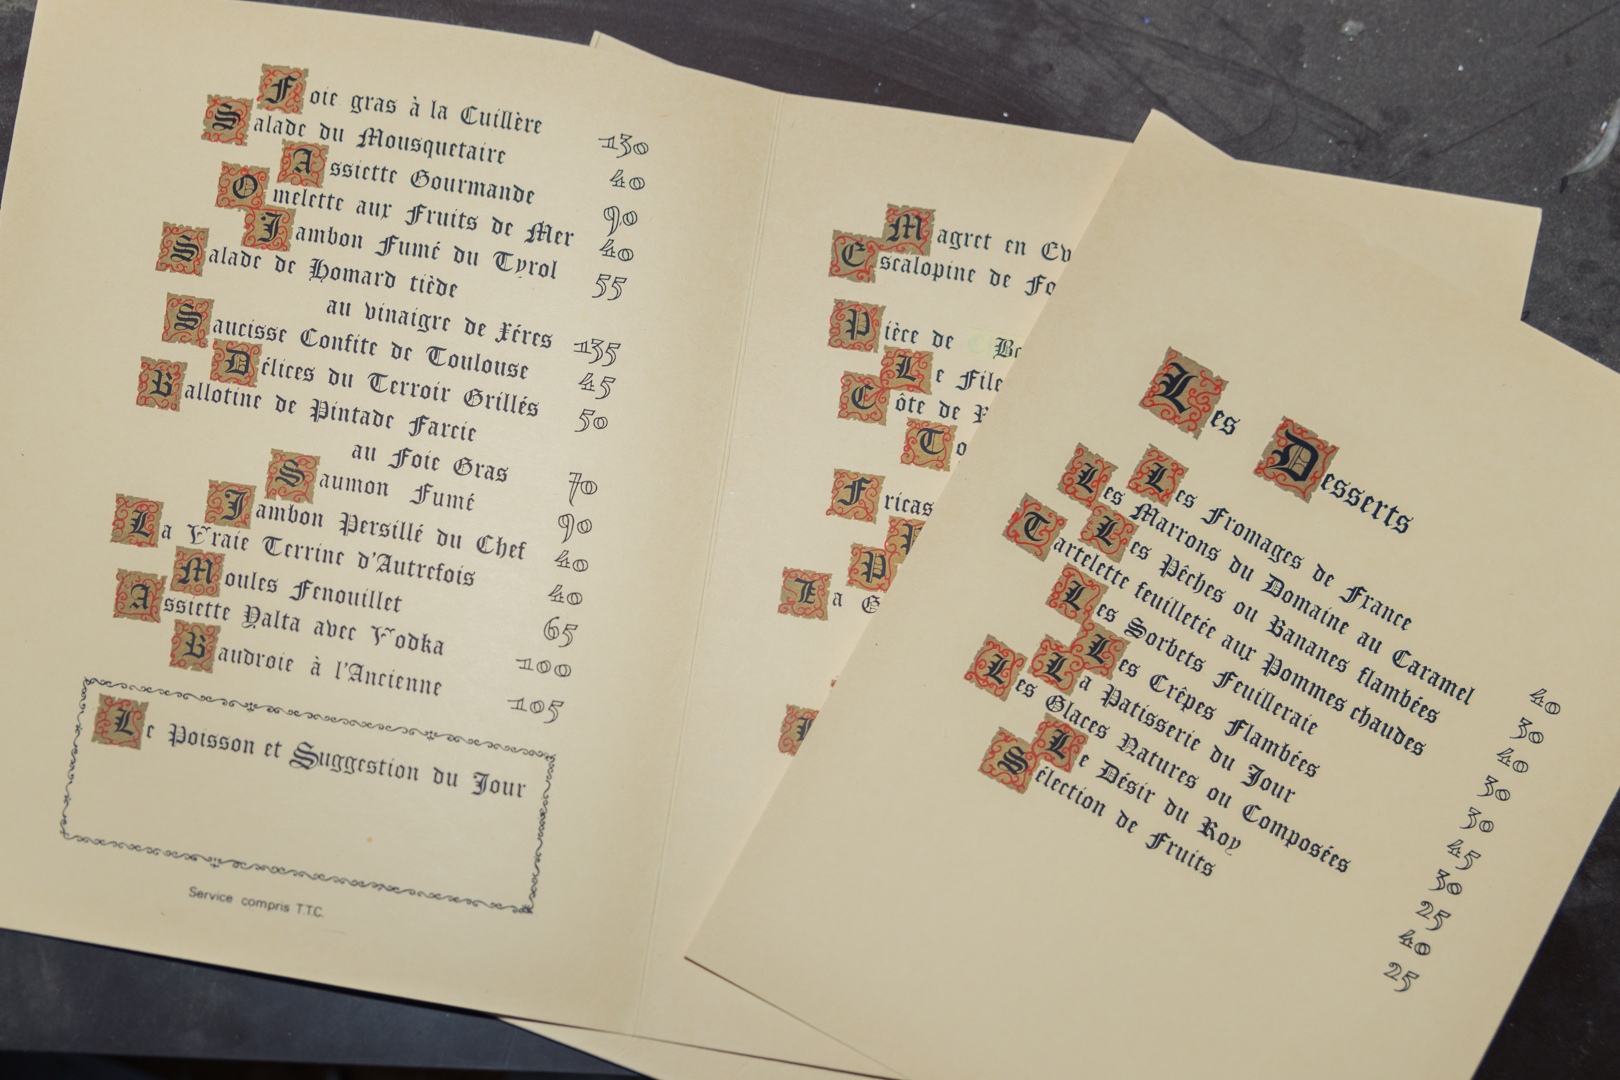 Foie gras à la Cuillère 130
Salade du Mousquetaire 40
Assiette Gourmande 90
Omelette aux Fruits de Mer 40
Jambon Fumé du Tyrol 55
Salade de Homard tiède
au vinaigre de Xéres 135
Saucisse Confite de Toulouse 45
Délices du Terroir Grillés 50
Ballotine de Pintade Farcie
au Foie Gras 70
Saumon Fumé 90
Jambon Persillé du Chef 40
La Vraie Terrine d'Autrefois 40
Moules Fenouillet 65
Assiette Yalta avec Vodka 100
Baudroie à l'Ancienne 105
Le Poisson et Suggestion du Jour
Service compris T.T.C.
Magret en
Escalopine de
Pièce de
Le
Côte de
La
Les Desserts
Les Fromages de France 40
Les Marrons du Domaine au Caramel 30
Les Pêches ou Bananes flambées 40
Tartelette feuilletée aux Pommes chaudes 30
Les Sorbets Feuilleraie 30
Les Crêpes Flambées 45
La Patisserie du Jour 30
Les Glaces Natures ou Composées 25
Le Désir du Roy 40
Sélection de Fruits 25